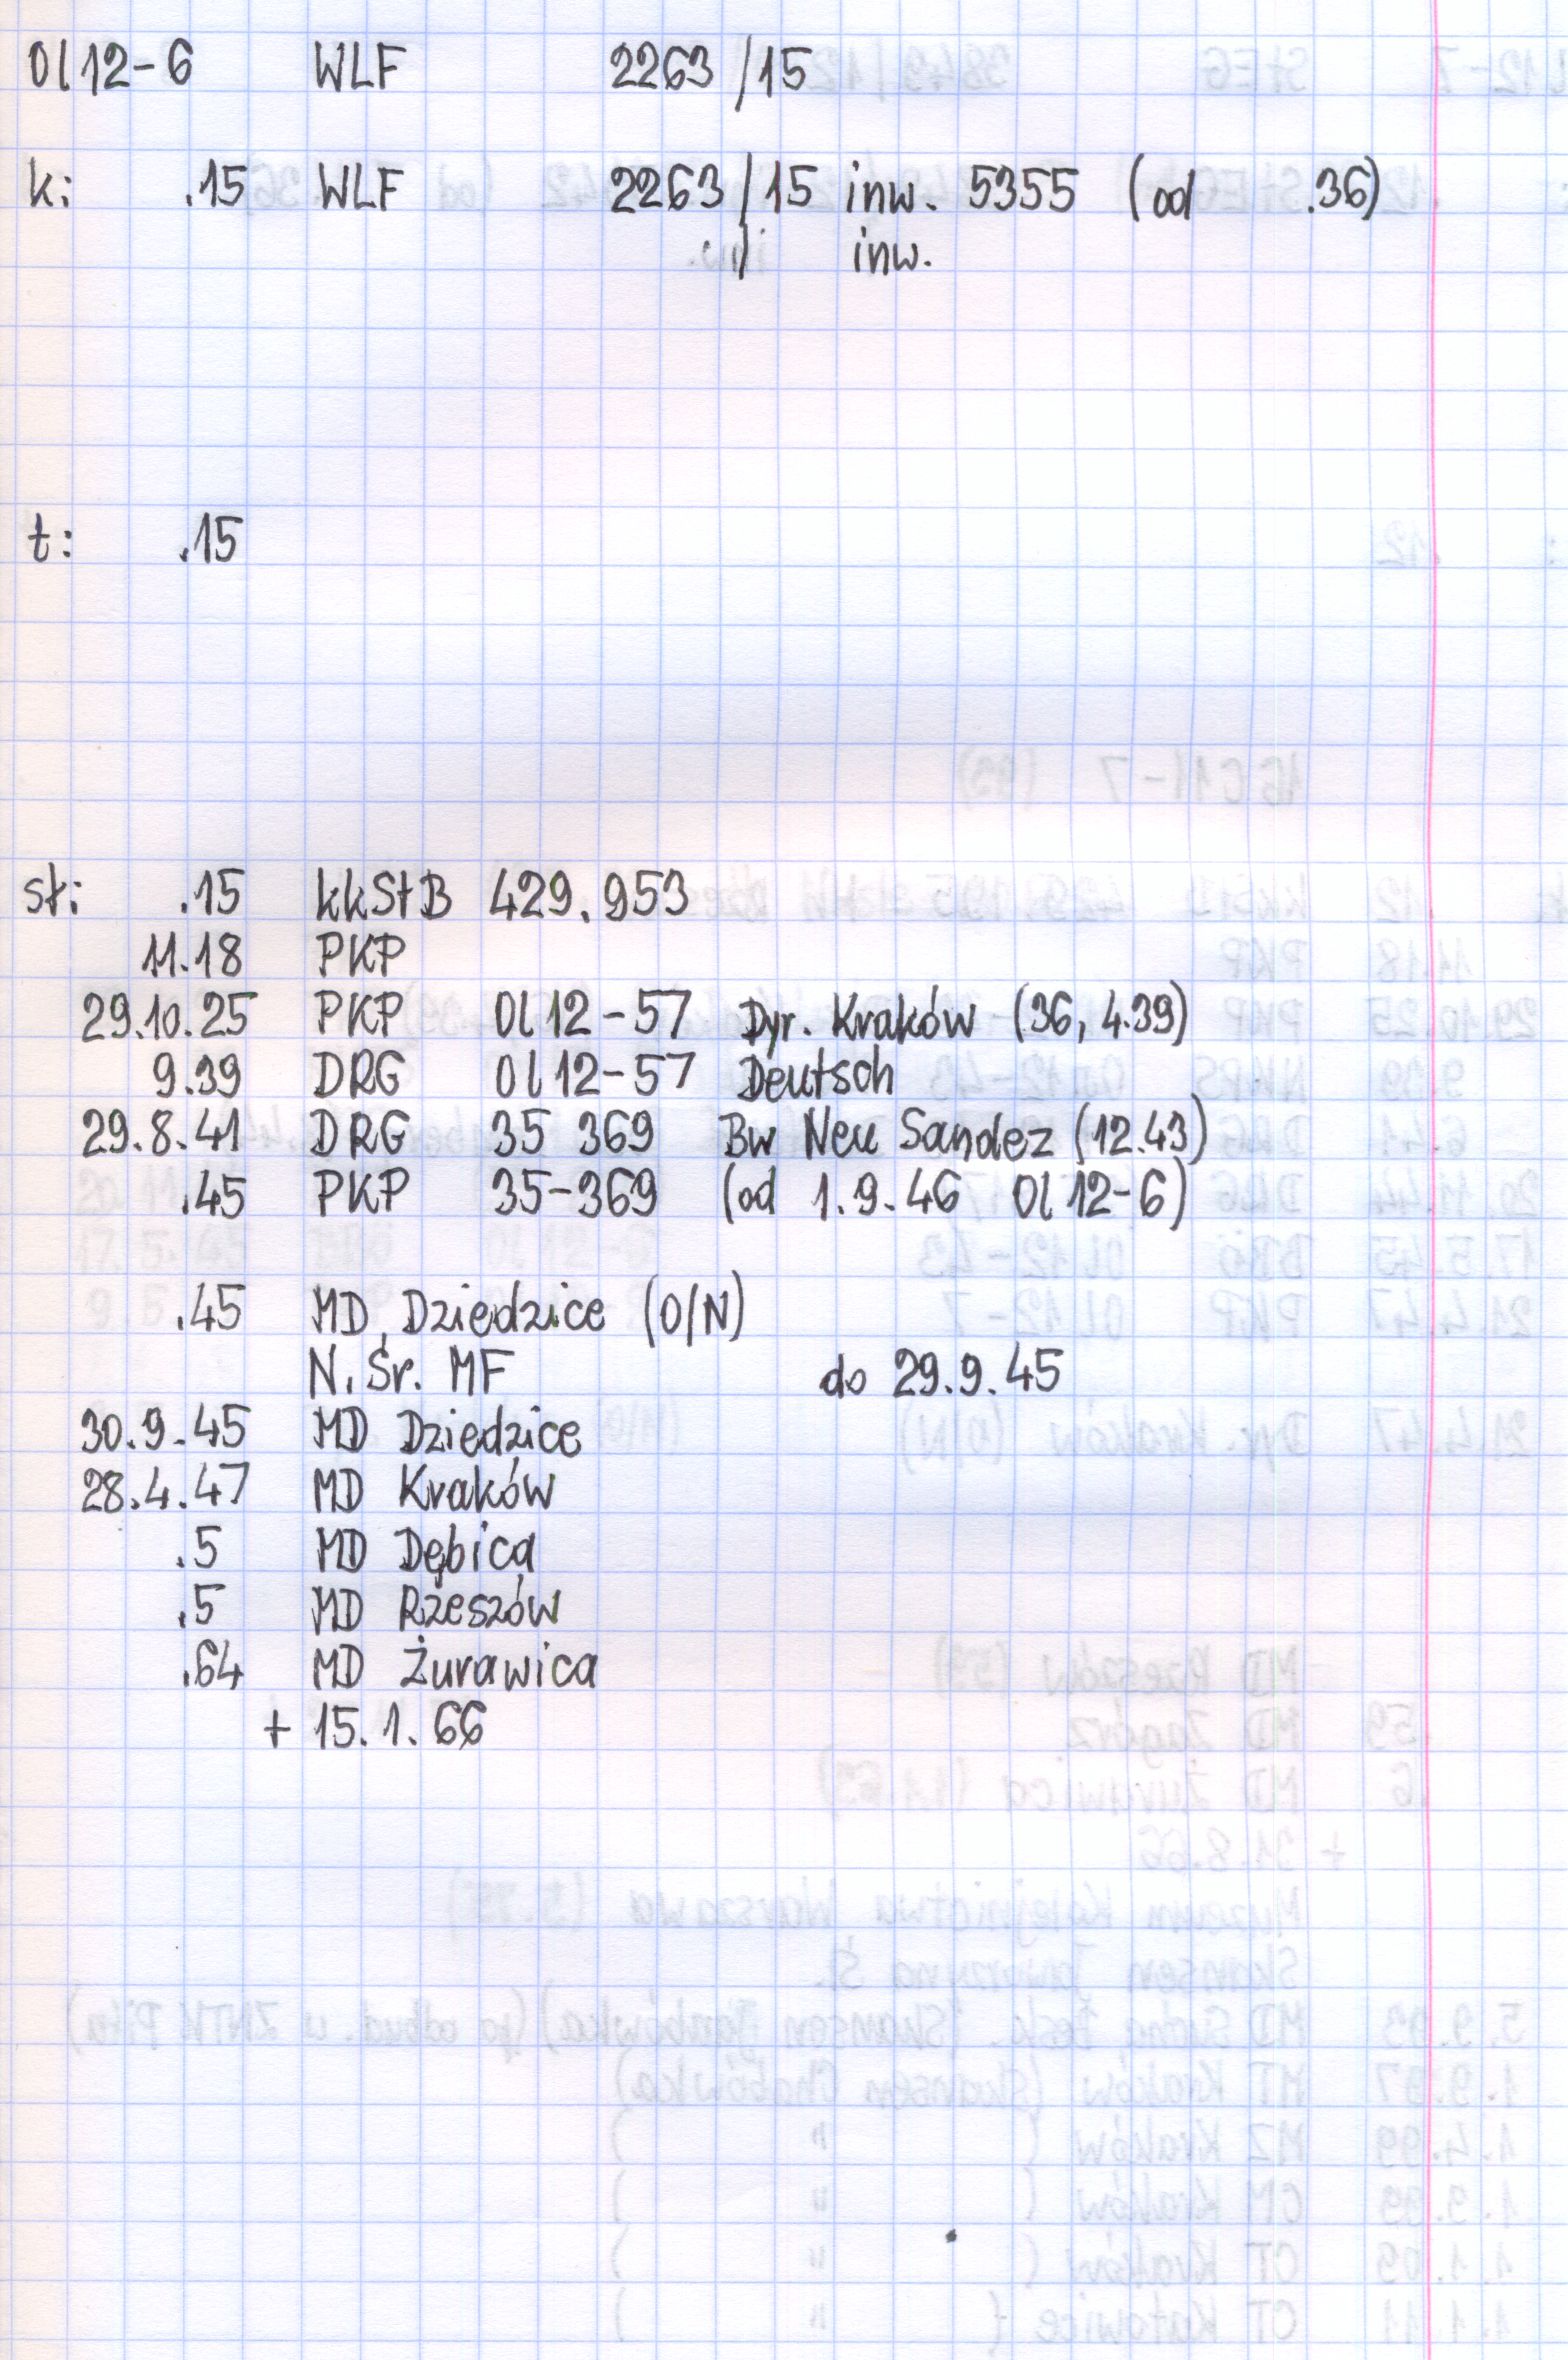 Ol12-6 WLF 2263/15
k: .15 WLF 2263/15 inw. 5355 (od .36)
/ inw.
t: .15
st: .15 kkStB 429.953
11.18 PKP
29.10.25 PKP Ol12-57 Dyr. Kraków (36, 4.39)
9.39 DRG Ol12-57 Deutsch
29.8.41 DRG 35 369 Bw Neu Sandez (12.43)
.45 PKP 35-369 (od 1.9.46 Ol12-6)
.45 MD Dziedzice (O/N)
N. Śr. MF do 29.9.45
30.9.45 MD Dziedzice
28.4.47 MD Kraków
.5 MD Dębica
.5 MD Rzeszów
.64 MD Żurawica
+ 15.1.66